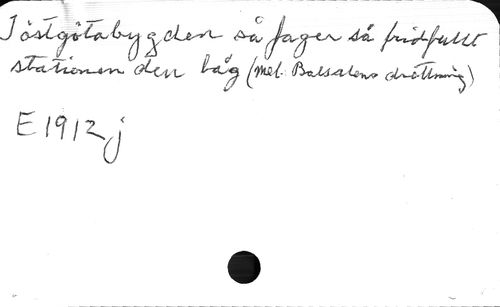 I östgötabygden så fager så fridfullt
stationen den låg (mel. Balsalens drottning)
E 1912 j